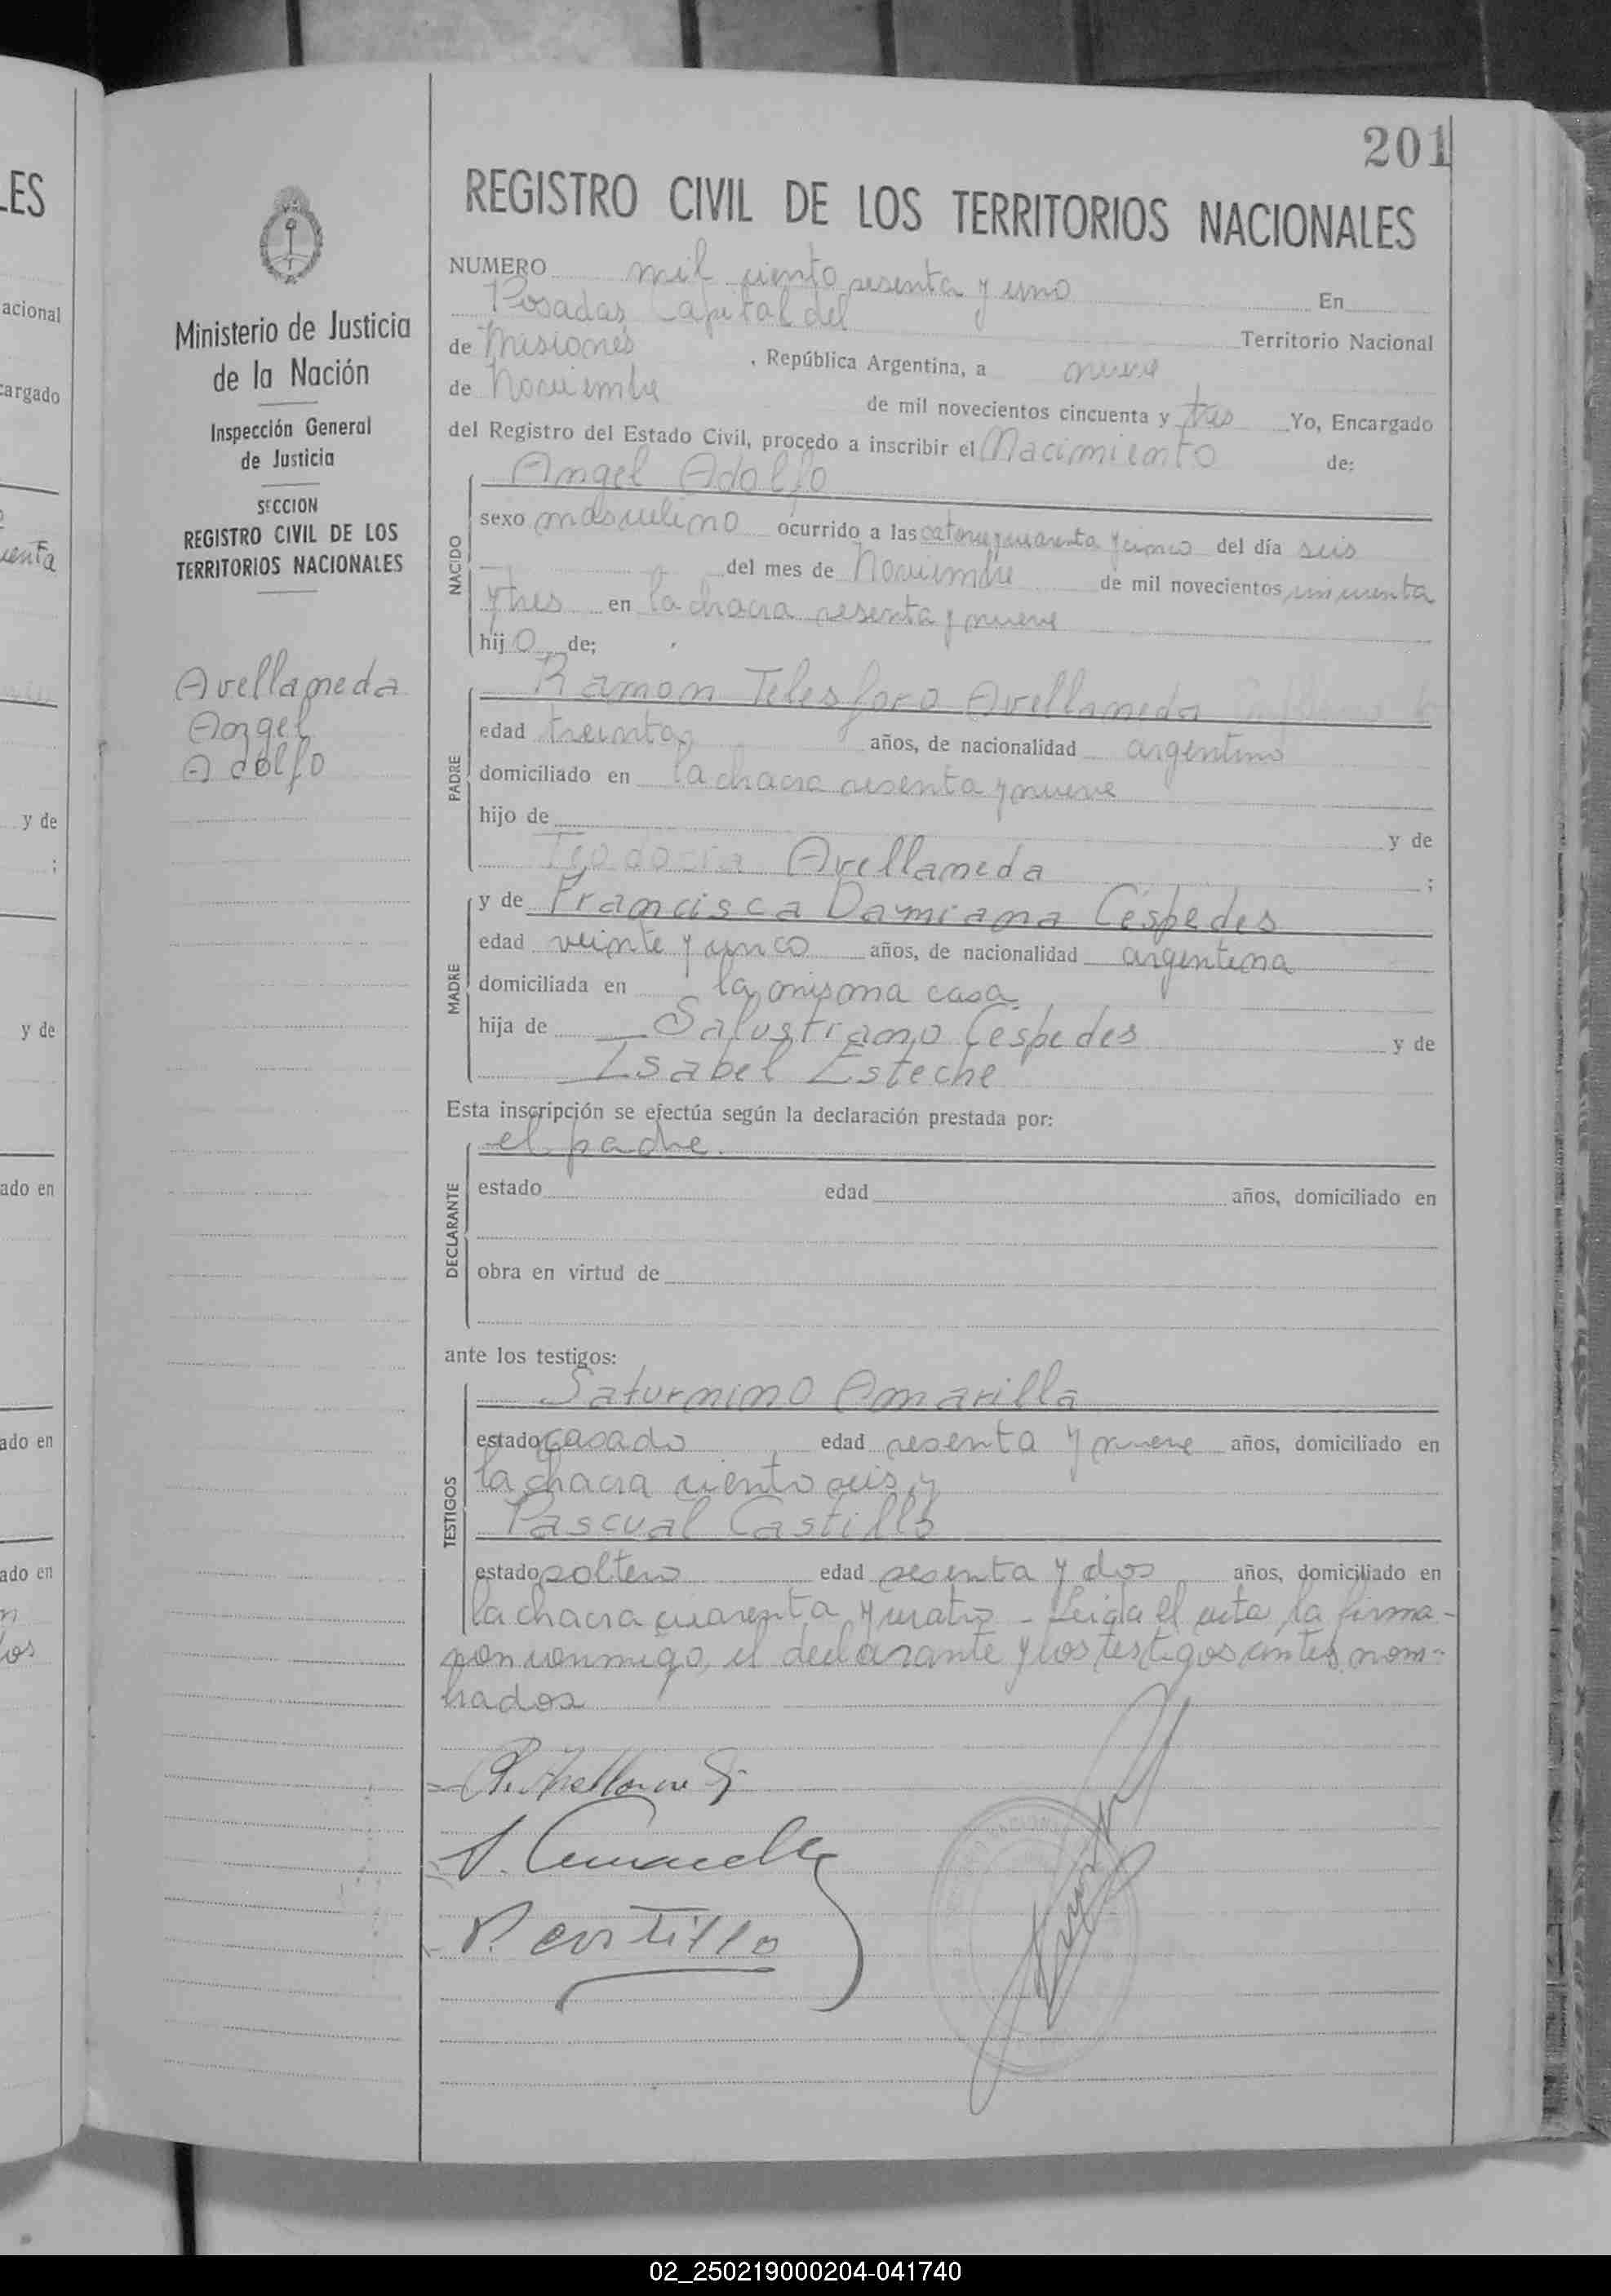 201
REGISTRO CIVIL DE LOS TERRITORIOS NACIONALES
Ministerio de Justicia
de la Nación
Inspección General
de Justicia
SECCION
REGISTRO CIVIL DE LOS
TERRITORIOS NACIONALES
Avellaneda
Angel
Adolfo
NUMERO mil ciento sesenta y uno En
Posadas, Capital del Territorio Nacional
de Misiones, República Argentina, a nueve
de Noviembre de mil novecientos cincuenta y tres Yo, Encargado
del Registro del Estado Civil, procedo a inscribir el Nacimiento de:
NACIDO
Angel Adolfo
sexo masculino ocurrido a las catorce y cuarenta y cinco del día seis
del mes de Noviembre de mil novecientos cincuenta
y tres en la chacra sesenta y nueve
hijo de;
PADRE
Ramon Telesforo Avellaneda
edad treinta años, de nacionalidad argentino
domiciliado en la chacra sesenta y nueve
hijo de y de
Teodocia Avellaneda ;
MADRE
y de Francisca Damiana Céspedes
edad veinte y cinco años, de nacionalidad argentina
domiciliada en la misma casa
hija de Salustiano Céspedes y de
Isabel Esteche
Esta inscripción se efectúa según la declaración prestada por:
DECLARANTE
el padre.
estado edad años, domiciliado en
obra en virtud de
ante los testigos:
TESTIGOS
Saturnino Amarilla
estado casado edad sesenta y nueve años, domiciliado en
la chacra ciento seis y
Pascual Castillo
estado soltero edad sesenta y dos años, domiciliado en
la chacra cuarenta y cuatro - Leida el acta, la firma-
ron conmigo, el declarante y los testigos antes nom-
brados
R. Avellaneda
S. Amarilla
P. castillo
ES
acional
cargado
y de
;
y de
ado en
ado en
ado en
02_250219000204-041740